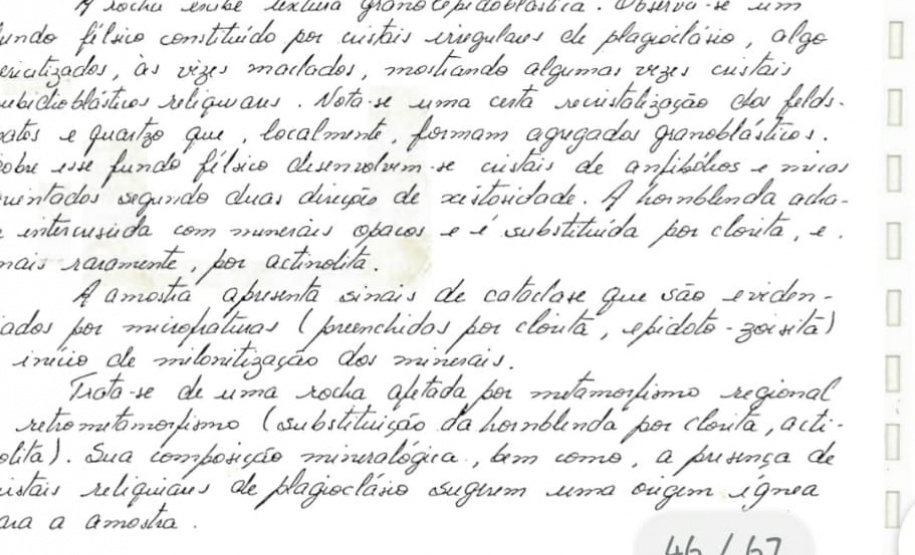 A rocha exibe textura granolepidoblástica. Observa-se um
undo félsico constituído por cristais irregulares de plagioclásio, algo
ericitizados, às vezes maclados, mostrando algumas vezes cristais
ubidioblásticos reliquiares. Nota-se uma certa recristalização dos felds-
patos e quartzo que, localmente, formam agregados granoblásticos.
obre esse fundo félsico desenvolvem-se cristais de anfibólios e micas
rientados segundo duas direção de xistosidade. A hornblenda acha-
e intercrescida com minerais opacos e é substituída por clorita, e.
mais raramente, por actinolita.
A amostra apresenta sinais de cataclase que são eviden-
iados por microfraturas (preenchidas por clorita, epidoto-zoisita)
início de milonitização dos minerais.
Trata-se de uma rocha afetada por metamorfismo regional
retrometamorfismo (substituição da hornblenda por clorita, acti-
olita). Sua composição mineralógica, bem como, a presença de
ristais reliquiares de plagioclásio sugerem uma origem ígnea
ara a amostra.
46 / 67